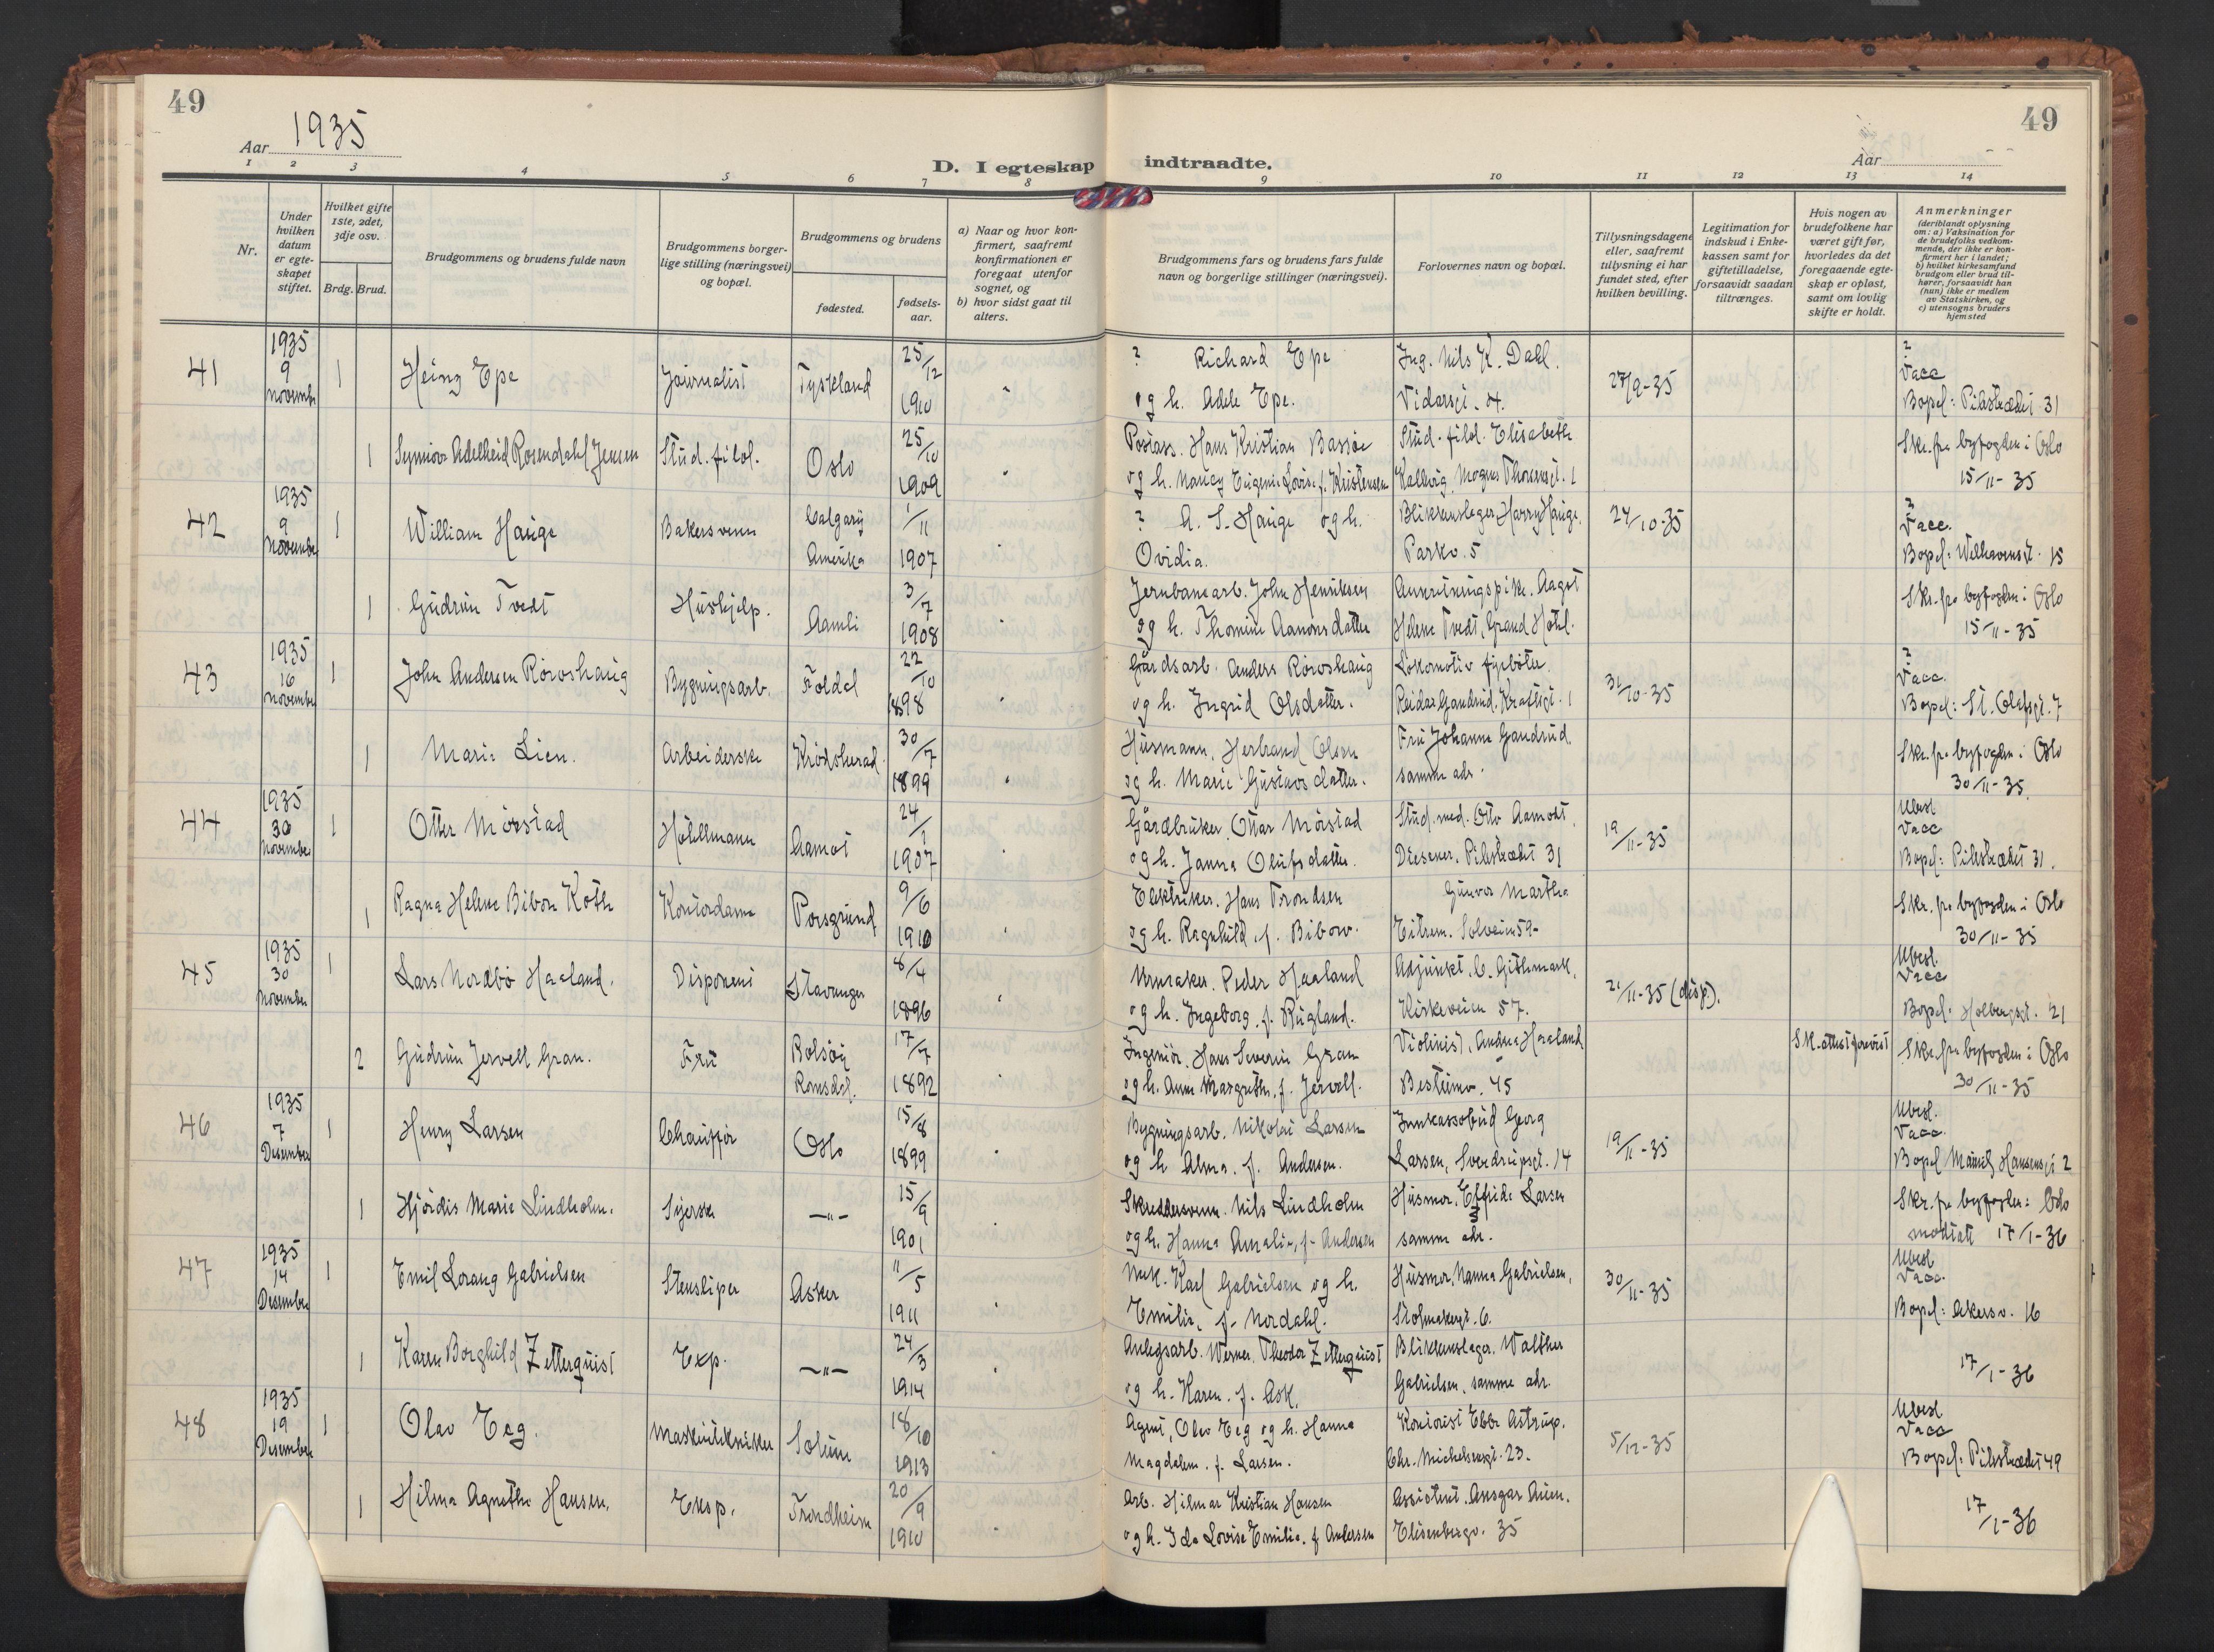 49
49
Aar 1935
Aar
D. I egteskap indtraadte.
1 2 3 4 5 6 7 8 9 10 11 12 13 14
Nr.
Under hvilken datum er egteskapet stiftet.
Hvilket gifte 1ste, 2det, 3dje osv.
Brdg. Brud.
Brudgommens og brudens fulde navn
Brudgommens borgerlige stilling (næringsvei) og bopæl.
Brudgommens og brudens
fødested.
fødselsaar.
a) Naar og hvor konfirmert, saafremt konfirmationen er foregaat utenfor sognet, og
b) hvor sidst gaat til alters.
Brudgommens fars og brudens fars fulde navn og borgerlige stillinger (næringsvei).
Forlovernes navn og bopæl.
Tillysningsdagene eller, saafremt tillysning ei har fundet sted, efter hvilken bevilling.
Legitimation for indskud i Enkekassen samt for giftetilladelse, forsaavidt saadan tiltrænges.
Hvis nogen av brudefolkene har været gift før, hvorledes da det foregaaende egteskap er opløst, samt om lovlig skifte er holdt.
Anmerkninger
(deriblandt oplysning om: a) Vaksination for de brudefolks vedkommende, der ikke er konfirmert her i landet; b) hvilket kirkesamfund brudgom eller brud tilhører, forsaavidt han (hun) ikke er medlem av Statskirken, og c) utensogns bruders hjemsted
41 1935 9 november 1 Heinz Epe Journalist Tyskland 25/12 1910 " ? Richard Epe og h. Adele Epe. Ing. Nils K. Dahl. Vidarsgt. 4. 27/9-35 ? Vacc Bopel: Pilestredet 31
1 Synnøve Adelheid Rosendahl Jensen Stud. filol. Oslo 25/10 1909 " Postass. Hans Kristian Bassøe og h. Nancy Eugenie Lovise f. Kristensen Stud. filol. Elisabeth Kallevig, Magnus Thorsensgt. 1 Skr. fra byfogden i Oslo 15/11-35
42 1935 9 November 1 William Hauge Bakersvenn Calgary Amerika 1/11 1907 " ? A. S. Hauge og h. Ovidia. Blikkenslager Harry Hauge. Parkv. 5 24/10-35 ? Vacc. Bopel: Welhavensgt. 15
1 Gudrun Tvedt Hushjelp. Aamli 3/7 1908 " Jernbanearb. John Henriksen og h. Thomine Aanonsdatter Anretningspike Aagot Helene Tvedt, Grand Hotel. Skr. fra byfogden i Oslo 15/11-35
43 1935 16 november 1 John Andersen Röroshaug Bygningsarb. Foldal 22/10 1898 " Gaardsarb. Anders Röroshaug og h. Ingrid Olsdatter. Lokomotiv fyrböter. Reidar Gandrud, Kraftsgt. 1 31/10-35 ? Vacc. Bopel: St. Olafsgt. 7
1 Marie Lien. Arbeiderske Krödsherad. 30/7 1899 " Husmann. Herbrand Olsen og h. Marie Gustavsdatter. Fru Johanne Gandrud. samme adr. Skr. fra byfogden i Oslo 30/11-35.
44 1935 30 november 1 Otter Mörstad Hotellmann Aamot 24/1 1907 " Gårdbruker. Ottar Mörstad og h. Janna Olufsdatter. Stud. med. Otto Aamodt. Diesener. Pilestredet 31 19/11-35 Ubesl Vacc Bopel: Pilestredet 31.
1 Ragna Helene Bibow Koth Kontordame Porsgrund 9/6 1910 " Elektriker. Hans Trondsen og h. Ragnhild, f. Bibow. Gunvor Martha Eitrem. Solveien 59- Skr. fra byfogden i Oslo 30/11-35
45 1935 30 november 1 Lars Nordbö Haaland. Disponent Stavanger 8/4 1896 " Urmaker. Peder Haaland og h. Ingeborg, f. Rugland. Adjunkt. C. Githmark, Kirkeveien 57. 21/11-35 (disp). Ubesl. Vacc Bopel. Holbergsgt. 21
2 Gudrun Jervell Gran. Fru Bolsöy Romsdal. 17/7 1892 " Ingeniör. Hans Severin Gran og h. Anne Margrethe, f. Jervell. Violinist, Andrea Haaland Bestumv. 45 Sk. attest forevist Skr. fra byfogden i Oslo 30/11-35
46 1935 7 Desember 1 Henry Larsen Chauffør Oslo 15/8 1899 " Bygningsarb. Nikolai Larsen og h. Alma. f. Andersen. Innkassobud Georg Larsen, Sverdrupsgt. 14 19/11-35 Ubesl. Vacc. Bopel Mauritz Hansensgt 2
1 Hjördis Marie Lindholm. Syerske —"— 15/9 1901 Skreddersvenn. Nils Lindholm og h. Hanna Amalie, f. Andersen Husmor. Elfride Larsen samme adr. Skr. fra byfogden: Oslo mottatt 17/1-36
47 1935 14 Desember 1 Emil Lorang Gabrielsen Stensliper Asker 11/5 1911 " Mek. Karl Gabrielsen og h. Emilie, f. Nordahl. Husmor, Nanna Gabrielsen, Stolmakergt. 6. 30/11-35 Ubesl Vacc. Bopel: Akersv. 16
1 Karen Borghild Zetterquist Exp. —"— 24/3 1914 Anlegsarb. Werner Theodor Zetterquist og h. Karen. f. Ask. Blikkenslager. Walther Gabrielsen, samme adr. 17/1-36
48 1935 19 Desember 1 Olav Eeg. Maskintekniker Solum 18/10 1913 Agent, Olav Eeg og h. Hanna Magdalene. f. Larsen. Kontorist Ebbe Astrup. Chr. Michelsensgt. 23. 5/12-35 Ubesl Vacc Bopel. Pilestredet 49
1 Hilma Agnethe Hansen. Eksp. Trondheim 20/9 1910 " Arb. Hilmar Kristian Hansen og h. Ida Lovise Emilie. f Andersen Assistent. Ansgar Auen. Elisenbergv. 35 17/1-36